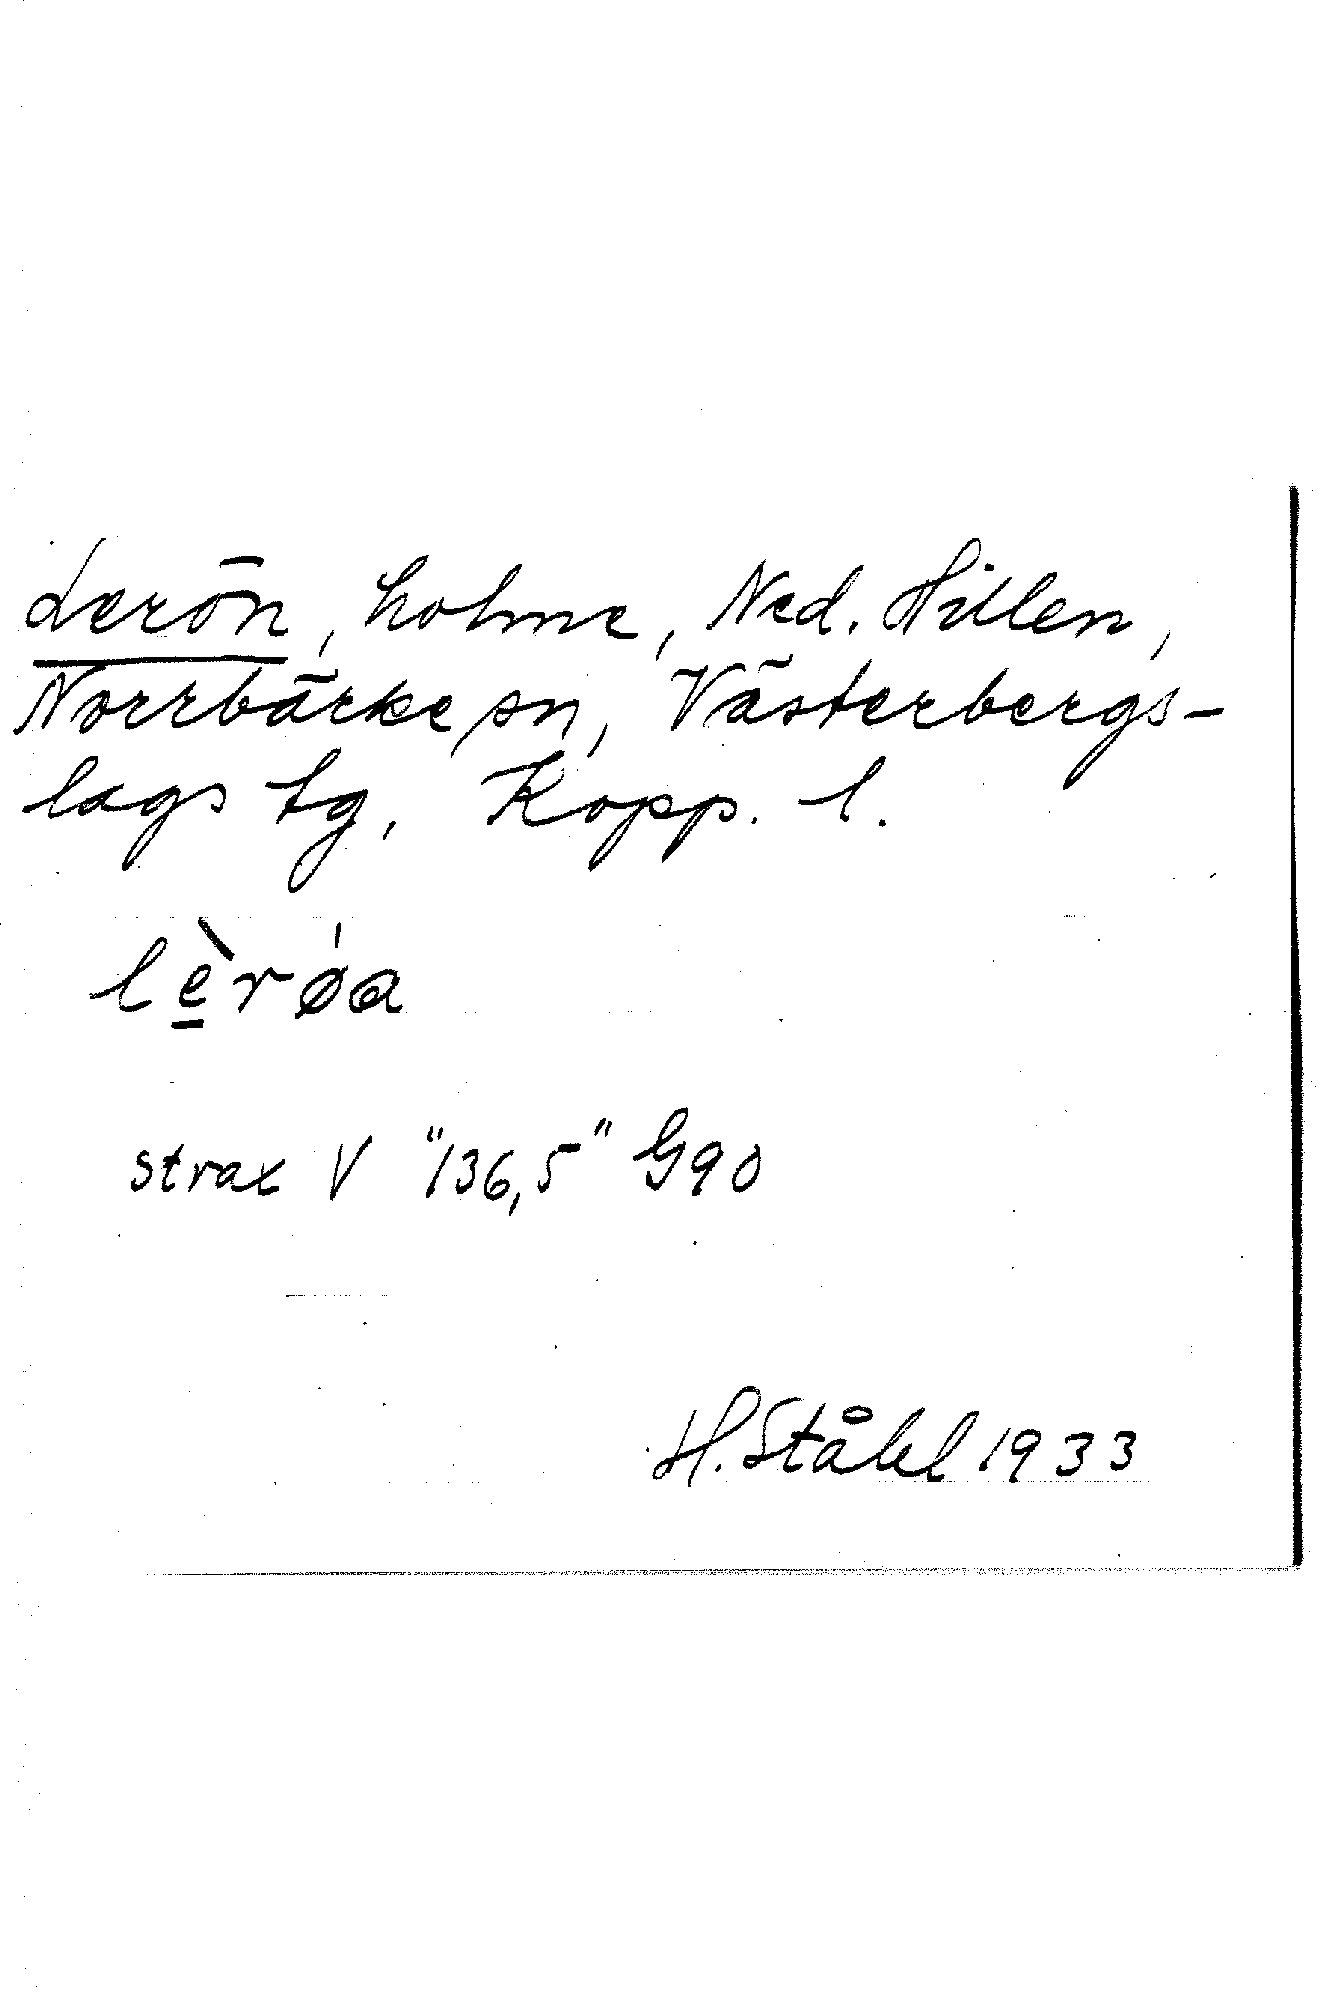 Lerön, holme, Ned. Hillen,
Norrbärke sn, Västerbergs-
lags tg, Kopp. l.
lè̠rǿa
strax V "136,5" G90
H. Ståhl 1933